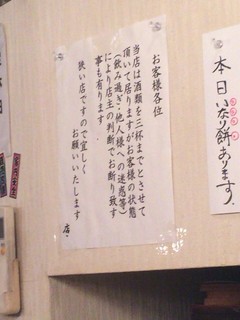 本日いなり餅あります。
お客様各位
当店は酒類を三杯までとさせて
頂いて居りますがお客様の状態
(飲み過ぎ・他人様への迷惑等)
により店主の判断でお断り致す
事も有ります
狭い店ですので宜しく
お願いいたします
店.